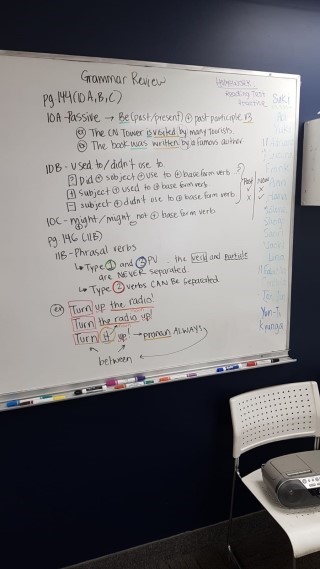 Grammar Review
pg.144 (10A, B, C)
10A-Passive → Be (past/present) + past participle
ex The CN Tower is visited by many tourists.
ex The book was written by a famous author.
10B - Used to/didn't use to
? Did + subject + use to + base form verb
+ Subject + used to + base form verb
- subject + didn't use to + base form verb
Past Now
10C - might/might not + base form verb
pg 146 (11B)
11B - Phrasal verbs
↳ Type 1 and 3 PV the verb and particle
are NEVER separated.
↳ Type 2 verbs CAN be separated
ex Turn up the radio!
Turn the radio up!
Turn it up! → pronoun ALWAYS
between
HOMEWORK
Reading Test
Practice
Yun-Ti